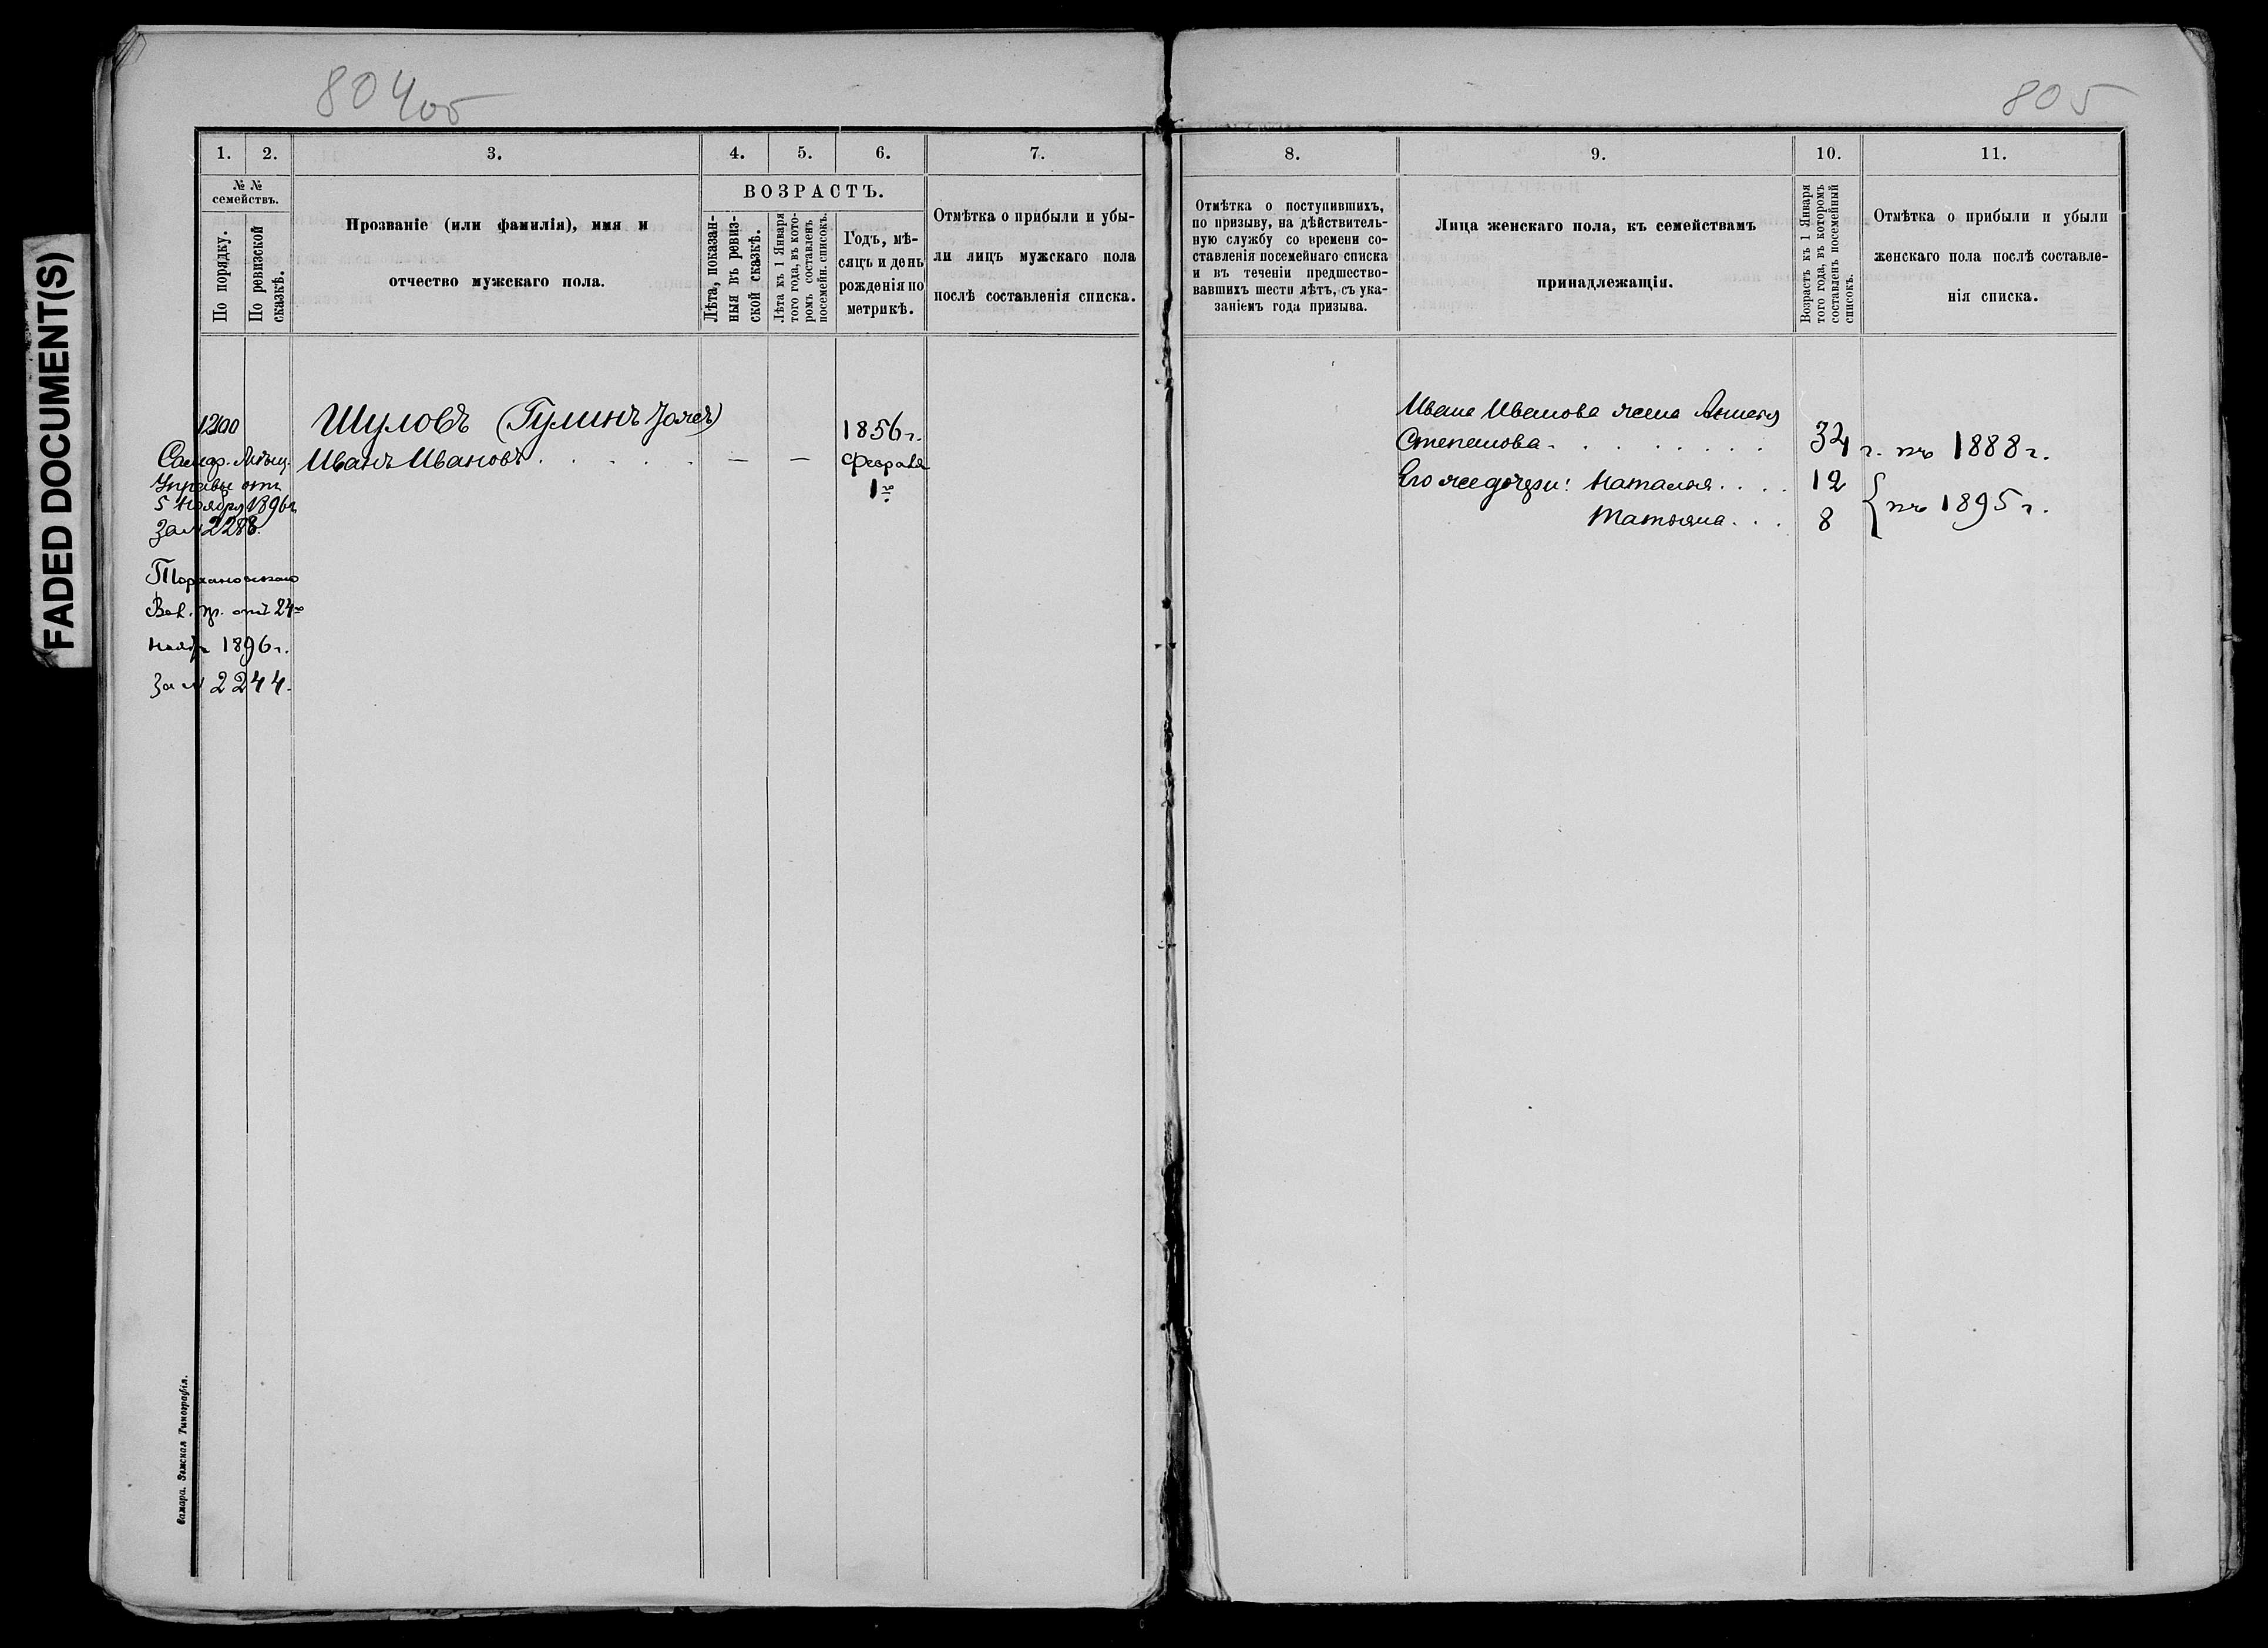 804 об
805
FADED DOCUMENT(S)
1. 2. 3. 4. 5. 6. 7.
№ №
семействъ.
По порядку.
По ревизской
сказкѣ.
Прозваніе (или фамилія), имя и
отчество мужскаго пола.
ВОЗРАСТЪ.
Лѣта, показан-
ныя въ ревиз-
ской сказкѣ.
Лѣта къ 1 Января
того года, въ кото-
ромъ составленъ
посемейн. списокъ.
Годъ, мѣ-
сяцъ и день
рожденія по
метрикѣ.
Отмѣтка о прибыли и убы-
ли лицъ мужскаго пола
послѣ составленія списка.
8. 9. 10. 11.
Отмѣтка о поступившихъ,
по призыву, на дѣйствитель-
ную службу со времени со-
ставленія посемейнаго списка
и въ теченіи предшество-
вавшихъ шести лѣтъ, съ ука-
заніемъ года призыва.
Лица женскаго пола, къ семействамъ
принадлежащія.
Возрастъ къ 1 Января
того года, въ которомъ
составленъ посемейный
списокъ.
Отмѣтка о прибыли и убыли
женскаго пола послѣ составле-
нія списка.
1200
Самар. Мѣщ.
Управы отъ
5 Ноября 1896 г.
За № 2288.
Вол. пр. отъ 24го
ноябр 1896 г.
За № 2244.
Шуловъ (Гулинъ тожъ)
Иванъ Ивановъ . . . . . — —
1856 г.
Февраля
1го
Ивана Иванова жена
Степанова . . . . . . . 32 г. въ 1888 г.
Его же дочери: Наталья . . . . 12
Татьяна . . . 8
въ 1895 г.
Самара. Земская Типографія.